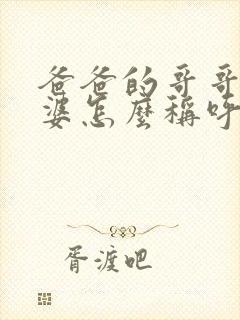 爸爸的哥哥
婆怎麼稱呼
胥渡吧